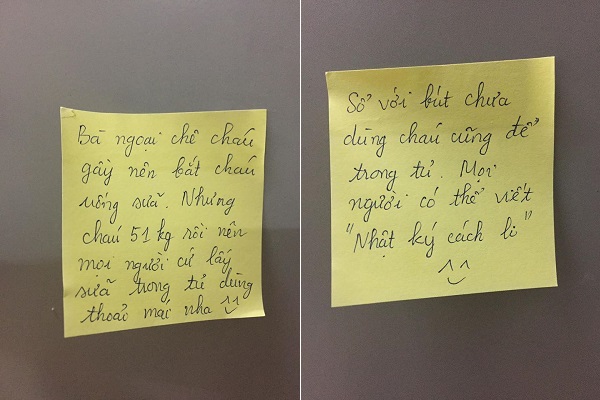 Bà ngoại chê cháu
gầy nên bắt cháu
uống sữa. Nhưng
cháu 51 kg rồi nên
mọi người cứ lấy
sữa trong tủ dùng
thoải mái nha ^^
Sổ với bút chưa
dùng cháu cũng để
trong tủ. Mọi
người có thể viết
"Nhật ký cách li"
^^